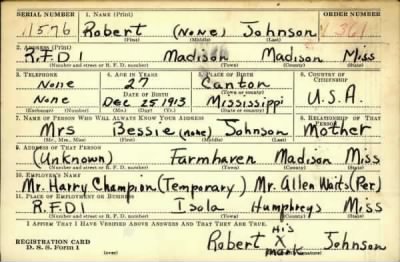 SERIAL NUMBER 1. NAME (Print) ORDER NUMBER
11576 Robert (None) Johnson
(First) (Middle) (Last)
2. ADDRESS (Print)
R.F.D 1 Madison Madison Miss
(Number and street or R. F. D. number) (Town) (County) (State)
3. TELEPHONE 4. AGE IN YEARS 5. PLACE OF BIRTH 6. COUNTRY OF CITIZENSHIP
None 27 Canton
(Town or county)
DATE OF BIRTH
None Dec 25 1913 Mississippi U.S.A.
(Exchange) (Number) (Mo.) (Day) (Yr.) (State or country)
7. NAME OF PERSON WHO WILL ALWAYS KNOW YOUR ADDRESS 8. RELATIONSHIP OF THAT PERSON
Mrs Bessie (none) Johnson Mother
(Mr., Mrs., Miss) (First) (Middle) (Last)
9. ADDRESS OF THAT PERSON
(Unknown) Farmhaven Madison Miss
(Number and street or R. F. D. number) (Town) (County) (State)
10. EMPLOYER'S NAME
Mr. Harry Champion (Temporary) Mr. Allen Waits (Per)
11. PLACE OF EMPLOYMENT OR BUSINESS
R.F.D 1 Isola Humphreys Miss
(Number and street or R. F. D. number) (Town) (County) (State)
I AFFIRM THAT I HAVE VERIFIED ABOVE ANSWERS AND THAT THEY ARE TRUE.
His
REGISTRATION CARD Robert X Johnson
D. S. S. Form 1 mark
(Registrant's signature)